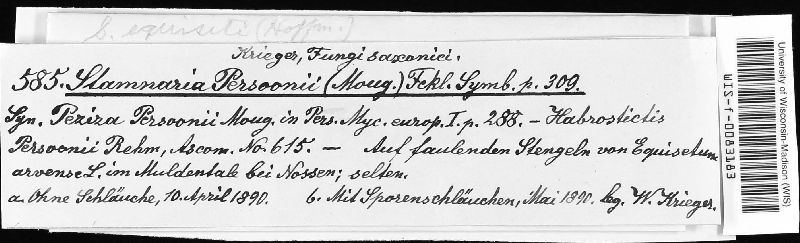 S. equiseti (Hoffm.)
Krieger, Fungi saxonici.
585. Stamnaria Persoonii (Moug.) Fckl. Symb. p. 309.
Syn. Peziza Persoonii Moug. in Pers. Myc. europ. I. p. 288. – Habrostictis
Persoonii Rehm, Ascom. No. 615. — Auf faulenden Stengeln von Equisetum
arvense L. im Muldentale bei Nossen; selten.
a. Ohne Schläuche, 10. April 1890. b. Mit Sporenschläuchen, Mai 1890. leg. W. Krieger.
University of Wisconsin-Madison (WIS)
WIS-f-0083183